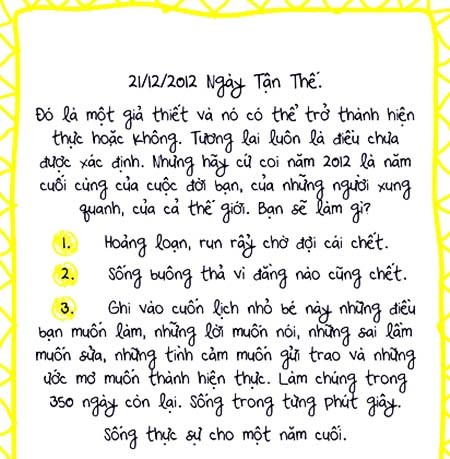 21/12/2012 Ngày Tận Thế.
Đó là một giả thiết và nó có thể trở thành hiện
thực hoặc không. Tương lai luôn là điều chưa
được xác định. Nhưng hãy cứ coi năm 2012 là năm
cuối cùng của cuộc đời bạn, của những người xung
quanh, của cả thế giới. Bạn sẽ làm gì?
1. Hoảng loạn, run rẩy chờ đợi cái chết.
2. Sống buông thả vì đằng nào cũng chết.
3. Ghi vào cuốn lịch nhỏ bé này những điều
bạn muốn làm, những lời muốn nói, những sai lầm
muốn sửa, những tình cảm muốn gửi trao và những
ước mơ muốn thành hiện thực. Làm chúng trong
350 ngày còn lại. Sống trong từng phút giây.
Sống thực sự cho một năm cuối.